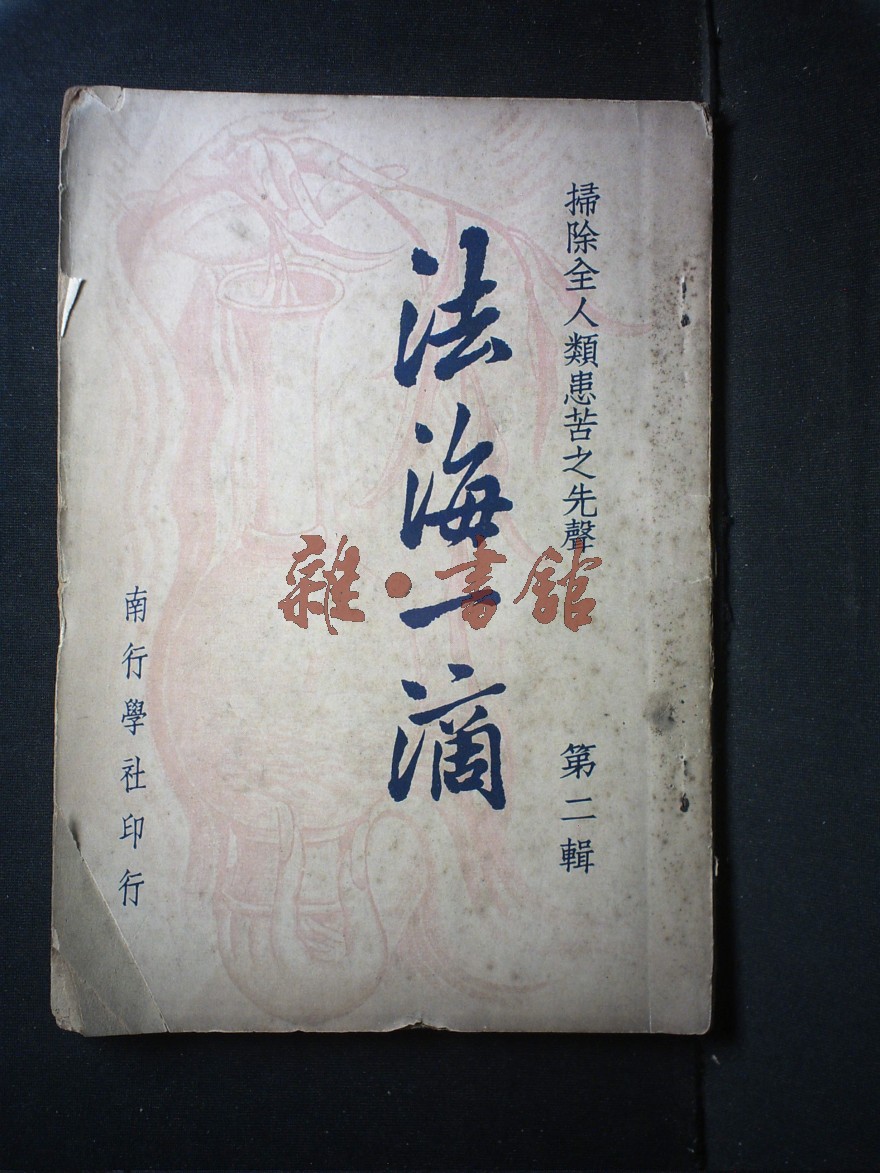 掃除全人類患苦之先聲
第二輯
法海一滴
南行學社印行
雜·書館